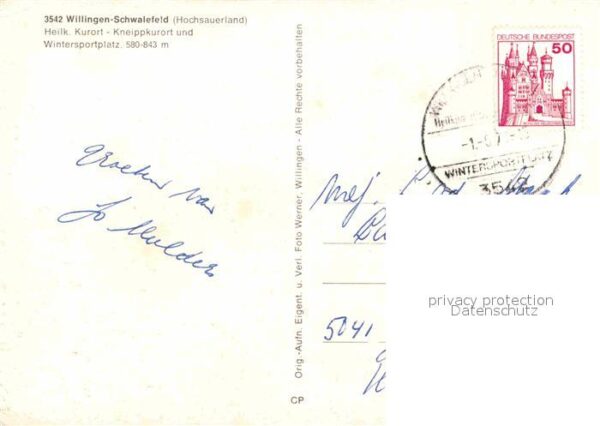 3542 Willingen-Schwalefeld (Hochsauerland)
Heilk. Kurort - Kneippkurort und
Wintersportplatz, 580-843 m
Groeten van
Jo Mulder
Orig.-Aufn. Eigent. u. Verl. Foto Werner, Willingen - Alle Rechte vorbehalten
CP
DEUTSCHE BUNDESPOST
50
WINTERSPORTPLATZ
3542
Mej.
5041
privacy protection
Datenschutz